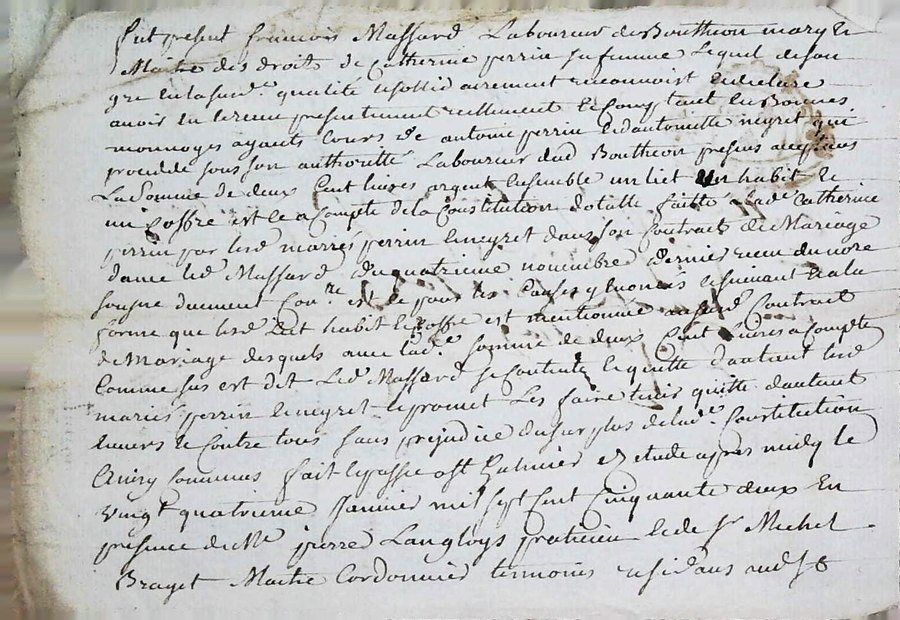 fut present francois Massard Laboureur de Bouthéon mary et
Maitre des droits de Catherine perrin sa femme Lequel de son
gre en lasusd.e qualité reconnoist
avoir eu et receu presentement reellement et Comptant en Bonnes
monnoyes ayants Cours de antoine perrin et dantoinette neyret qui
procedde sous son authoritté Laboureur dud Bouthéon presens acceptans
La Somme de deux Cent livres argent Ensemble un lict un habit et
un Coffre et ce a Compte de la Constitution dotalle faitte a lad.e Catherine
perrin par lesd mariés perrin et neyret dans son Contrat de Mariage
avec led Massard du quatrieme novembre dernier receu du no.re
soussigné duement Con.re et ce pour les Causes y enoncés et suivant et a la
forme que lesd Lict habit et Coffre est mentionné aud Contract
de Mariage desquels avec lad.e somme de deux Cent Livres a Compte
Comme sus est dit Led Massard se Contente et quitte dautant lesd
mariés perrin et neyret et promet Les faire tenir quitte dautant
envers et Contre tous sans prejudice du surplus de lad.e Constitution
fait et passé a St Galmier etude apres midy le
vingt quatrieme Janvier mil sept Cent Cinquante deux En
presence de M.e pierre Langloys praticien et de Sr Michel
Brayet Maitre Cordonnier temoins residans aud St G